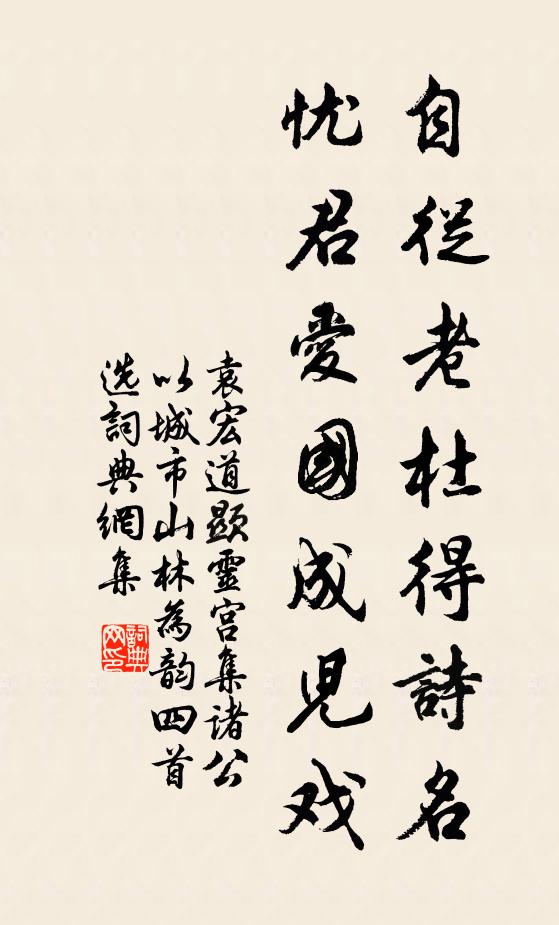 自從老杜得詩名
忧君愛國成児戏
袁宏道顯靈宫集諸公
以城市山林為韵四首
选詞典網集
詞典网印